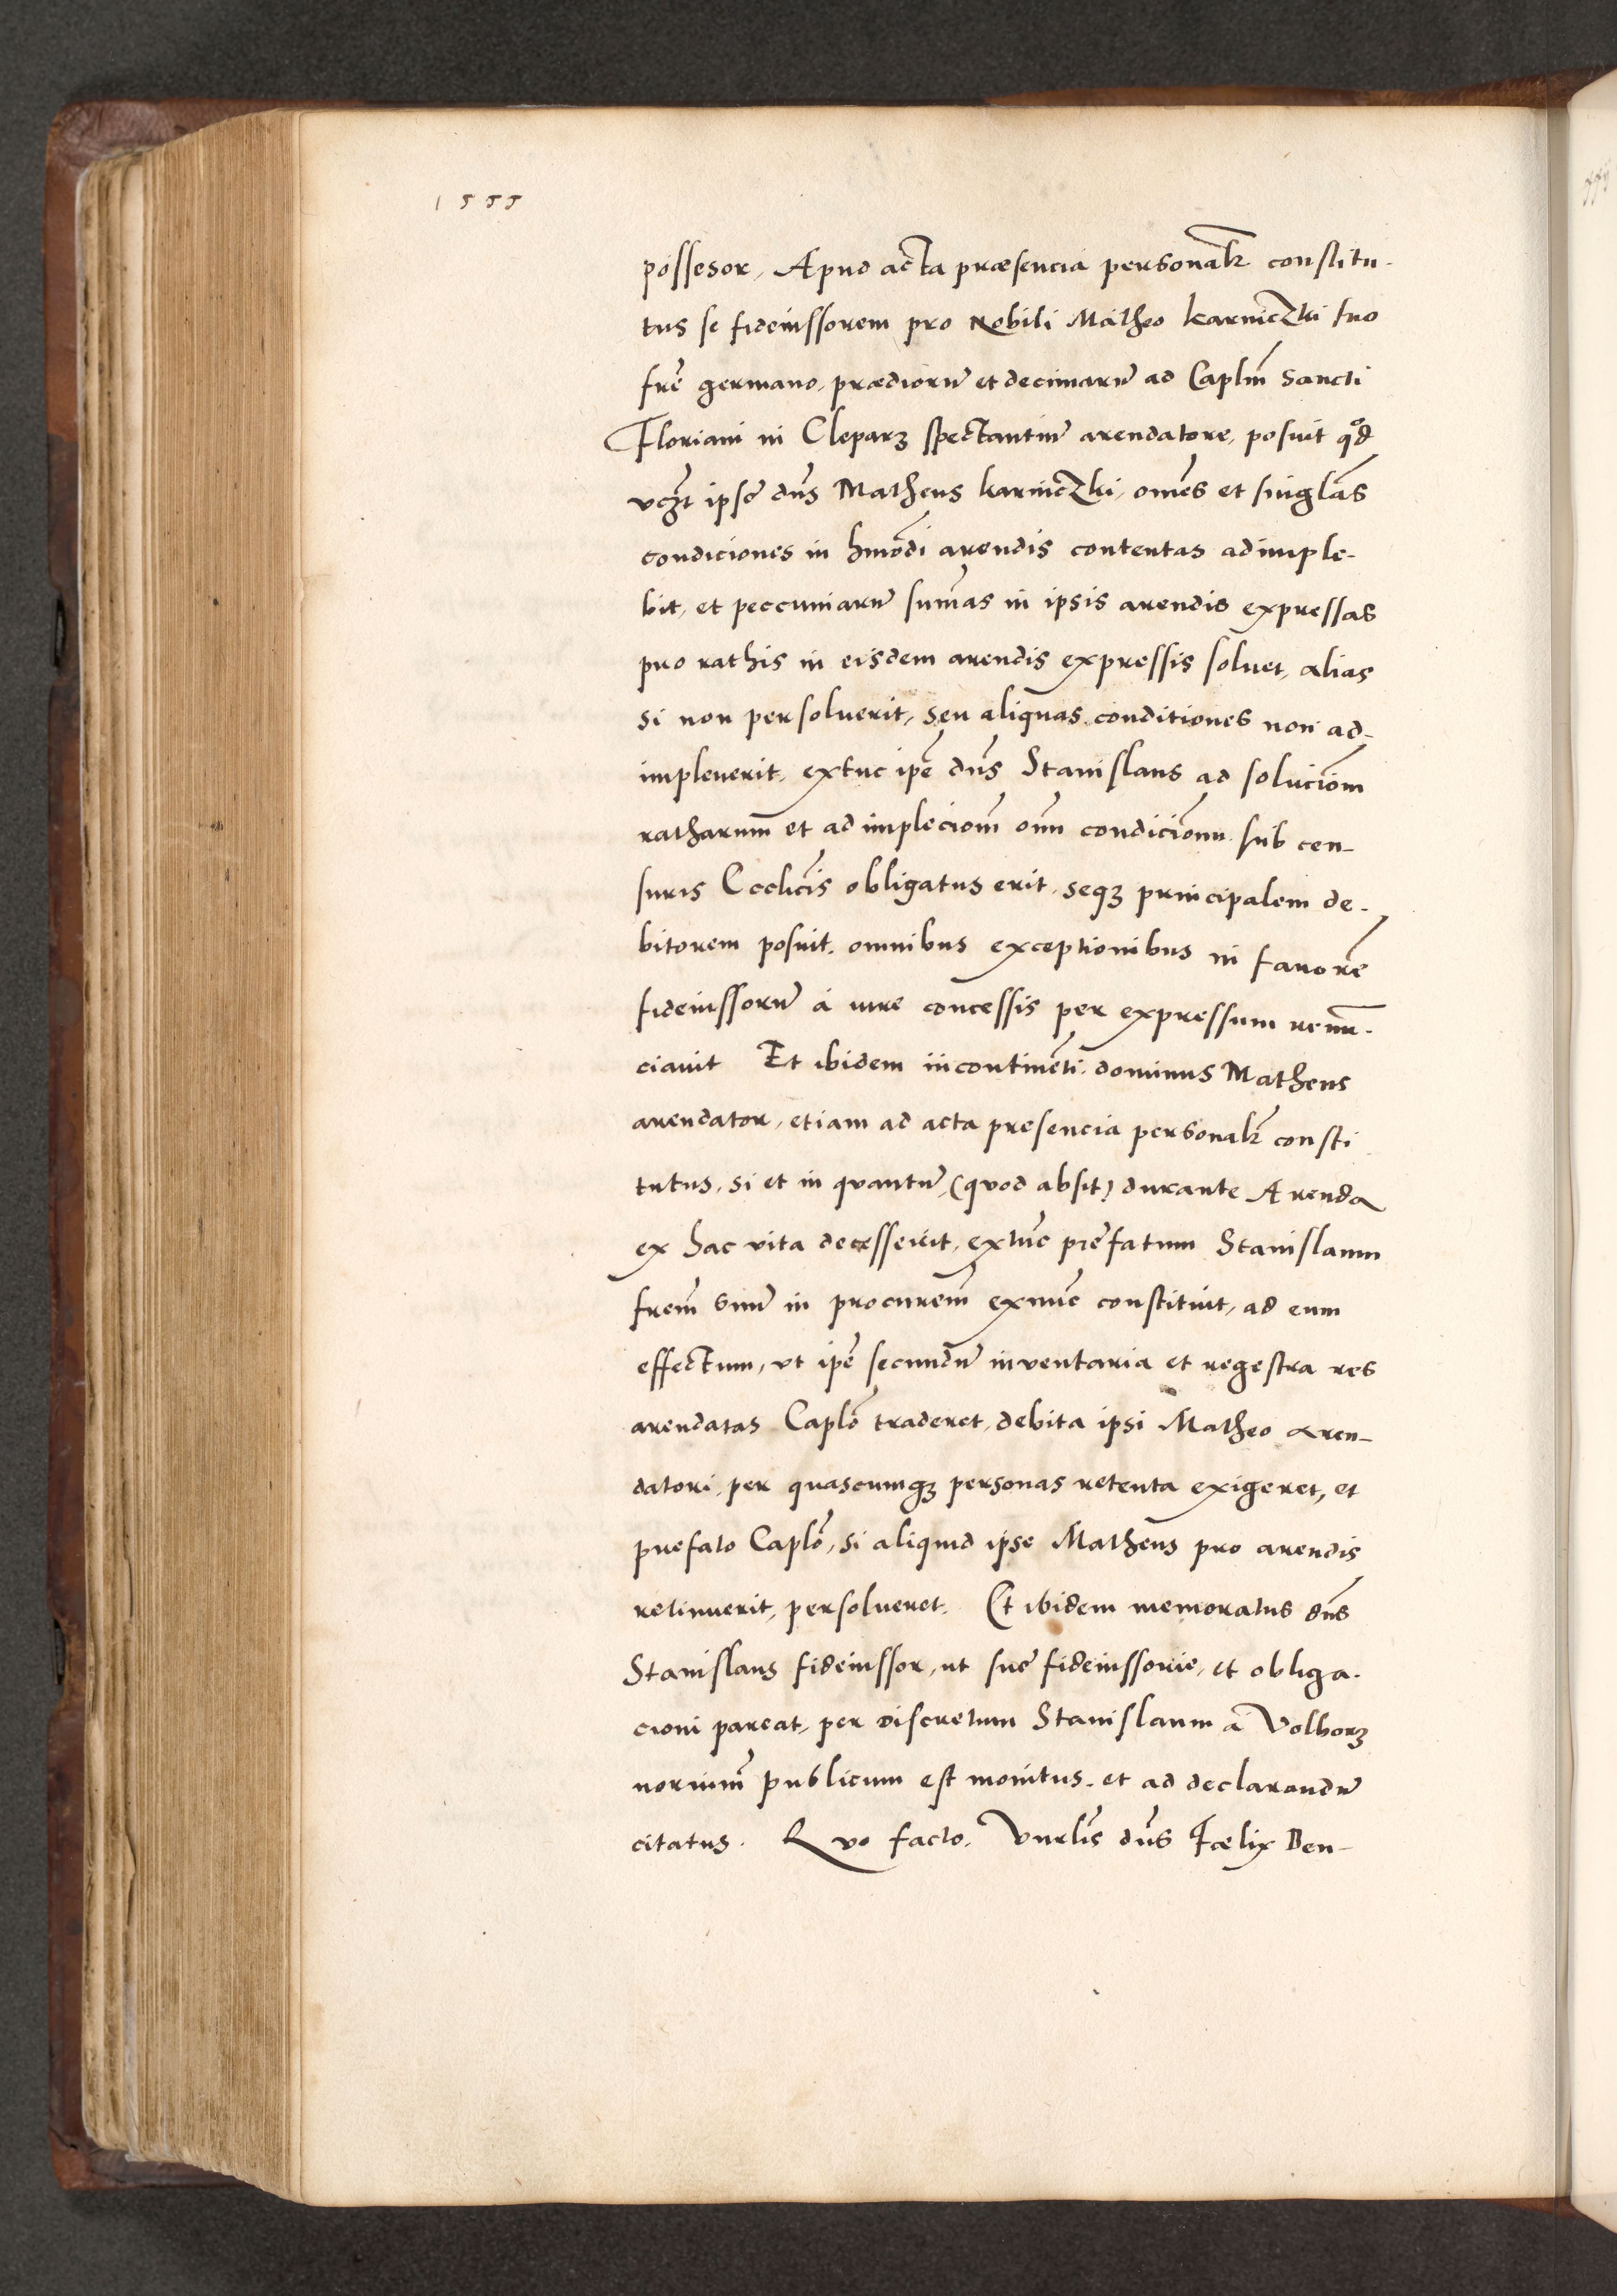 1555
possesor, Apud acta præsencia personalr̄ constitu-
tus se fideiussorem pro Nobili Matheo karniczki suo
frē germano, prædiorū et decimarū ad Caplm̄ sancti
Floriani in Cleparz spectantiū arendatore, posuit qd̊
vcz̄t ipse dn̄s Matheus karniczki, om̄es et singlās
condiciones in hmōdi arendis contentas adimple-
bit, et peccuniarū sum̄as in ipsis arendis expressas
pro rathis in eisdem arendis expressis soluet, alias
si non persoluerit, seu aliquas conditiones non ad-
impleuerit, extūc ipē dn̄s Stanislaus ad soluciōm
ratharum et ad impleciōm om̄ condicionū sub cen-
suris Ecclicīs obligatus erit, seqz principalem de-
bitorem posuit, omnibus exceptionibus in fauorē
fideiussorū á iure concessis per expressum renū-
ciauit Et ibidem incontinēti dominus Matheus
arendator, etiam ad acta presencia personalr̄ consti
tutus, si et in quantū, (quod absit) durante Arenda
ex hac vita decesserit, extūc prēfatum Stanislaum
frem̄ suū in procurem̄ exnūc constituit, ad eum
effectum, vt ipē secundū inventaria et regestra res
arendatas Caplō traderet, debita ipsi Matheo aren-
datori, per quascumqz personas retenta exigeret, et
prefato Caplō, si aliquid ipse Matheus pro arendis
retinuerit, persolueret. Et ibidem memoratus dn̄s
Stanislaus fideiussor, ut sue fideiussorie, et obliga-
cioni pareat, per discretum Stanislaum a Volborz
noriūm publicum est monitus, et ad declarandū
citatus. Quo facto, Vnrlīs dn̄s Fælix Den-